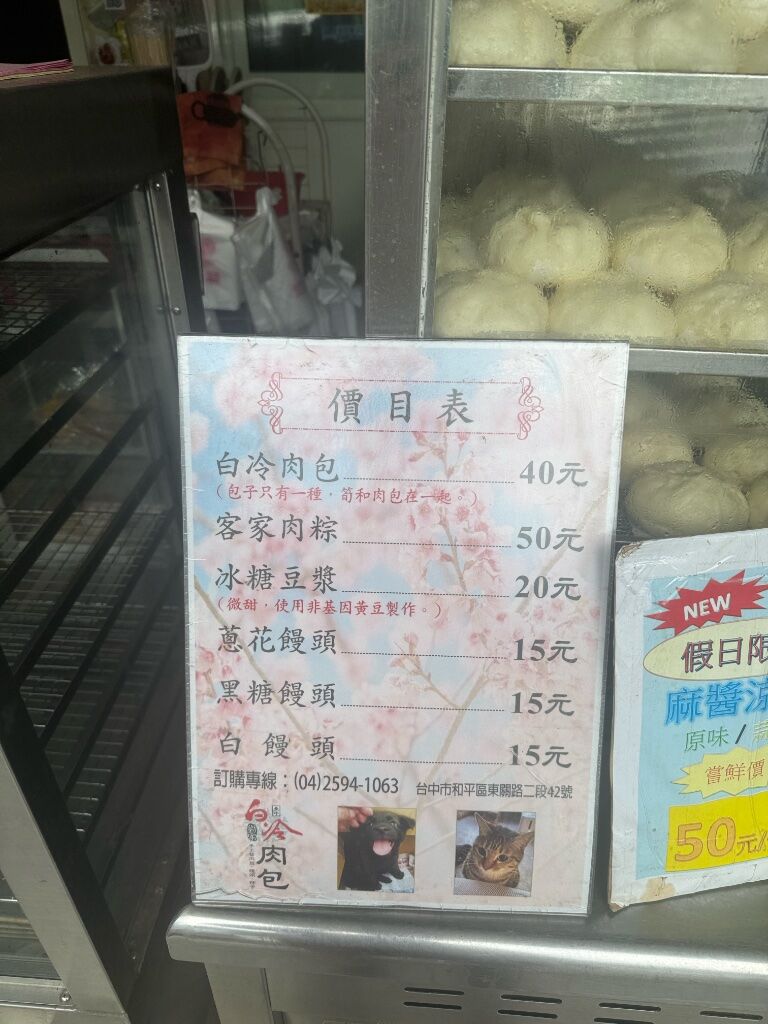 價目表
白冷肉包 40元
(包子只有一種,筍和肉包在一起。)
客家肉粽 50元
冰糖豆漿 20元
(微甜,使用非基因黃豆製作。)
蔥花饅頭 15元
黑糖饅頭 15元
白饅頭 15元
訂購專線:(04)2594-1063 台中市和平區東關路二段42號
白冷肉包
NEW
假日限
麻醬涼
原味/蒜
嘗鮮價
50元/